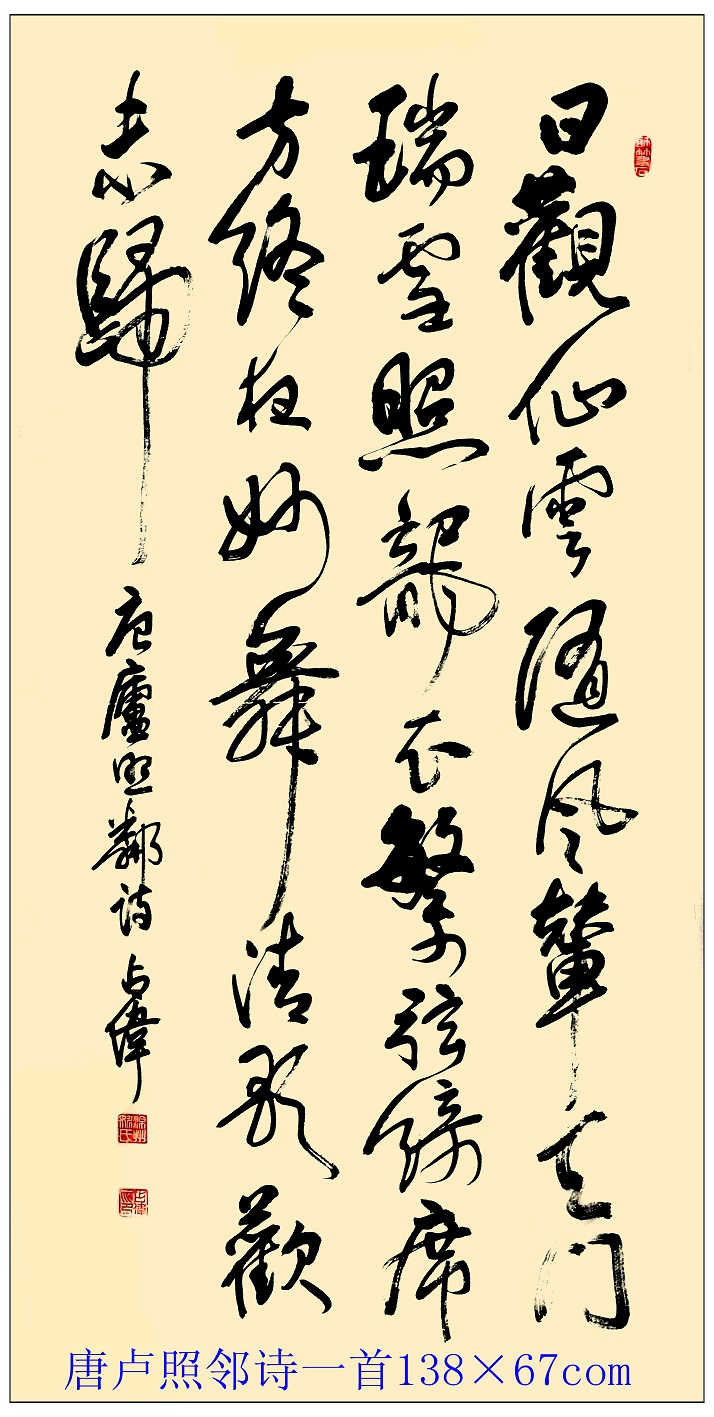 日觀仙雲隨鳳輦天門
瑞雪照龍衣繁弦綺席
方終夜妙舞清歌歡
未歸
唐廬照鄰詩 占偉
唐卢照邻诗一首138×67com